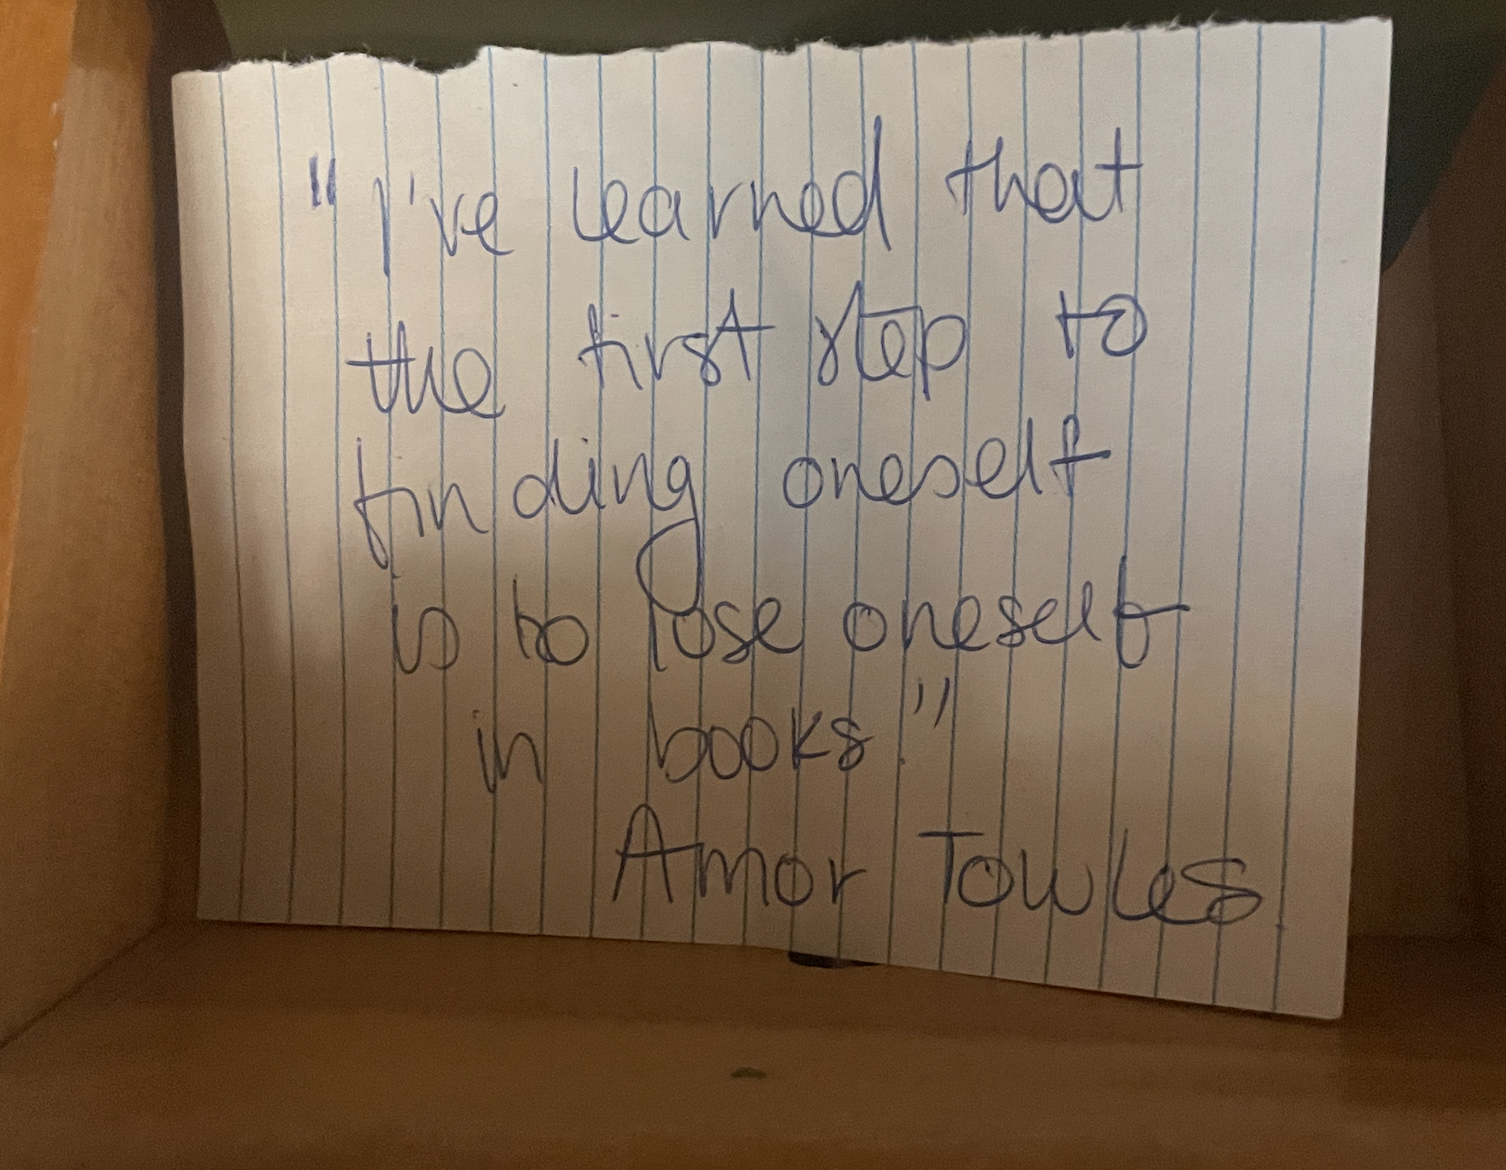 "I've learned that
the first step to
finding oneself
is to lose oneself
in books."
Amor Towles